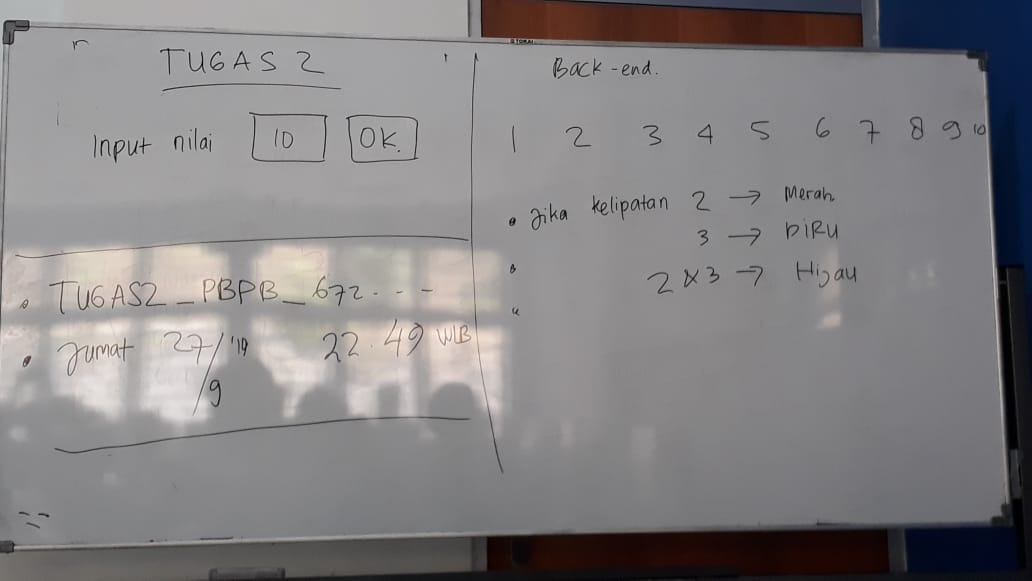 TUGAS 2
Input nilai 10 OK.
• TUGAS2_PBPB_672---
• Jumat 27/9 '19 22.49 WIB
Back-end.
1 2 3 4 5 6 7 8 9 10
• Jika kelipatan 2 → Merah
3 → BiRU
2 & 3 → Hijau